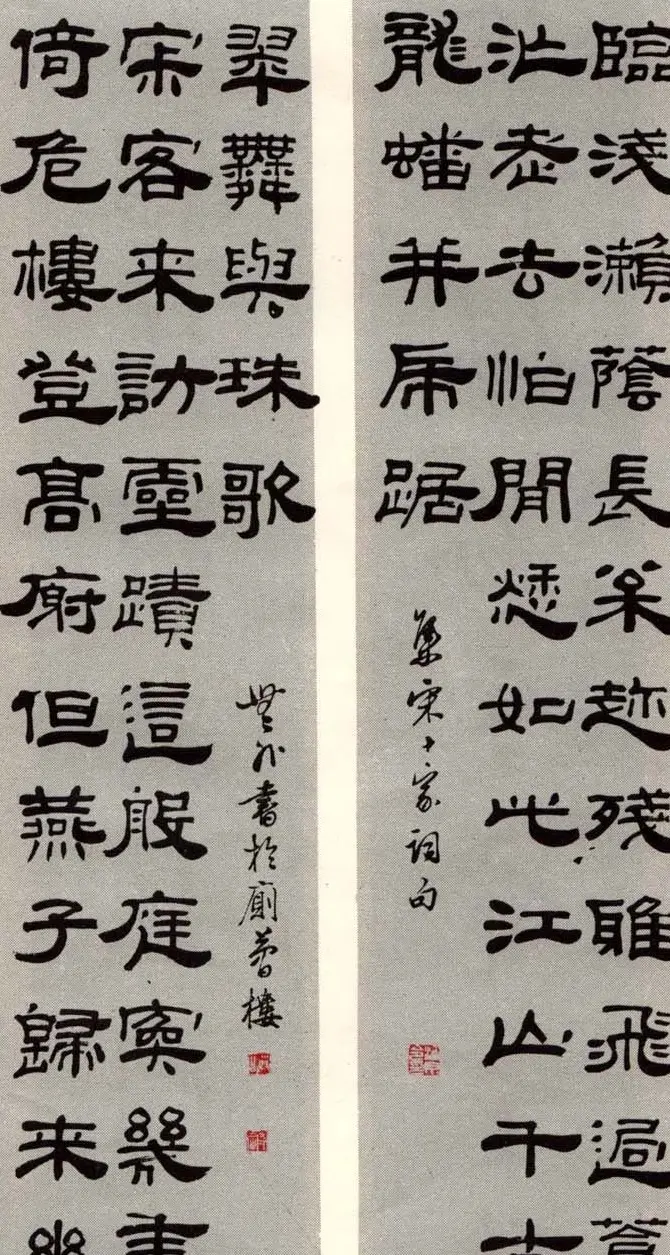 臨淺瀨蔭長枀趂殘雅飛過蒼
汒老去怕閒愁如此江山千古
龍蟠并虎踞
集宋十家詞句
倚危樓登高但燕子歸來幽
客來訪靈蹟這般庭寏幾畫
翠舞與珠歌
外書於樓